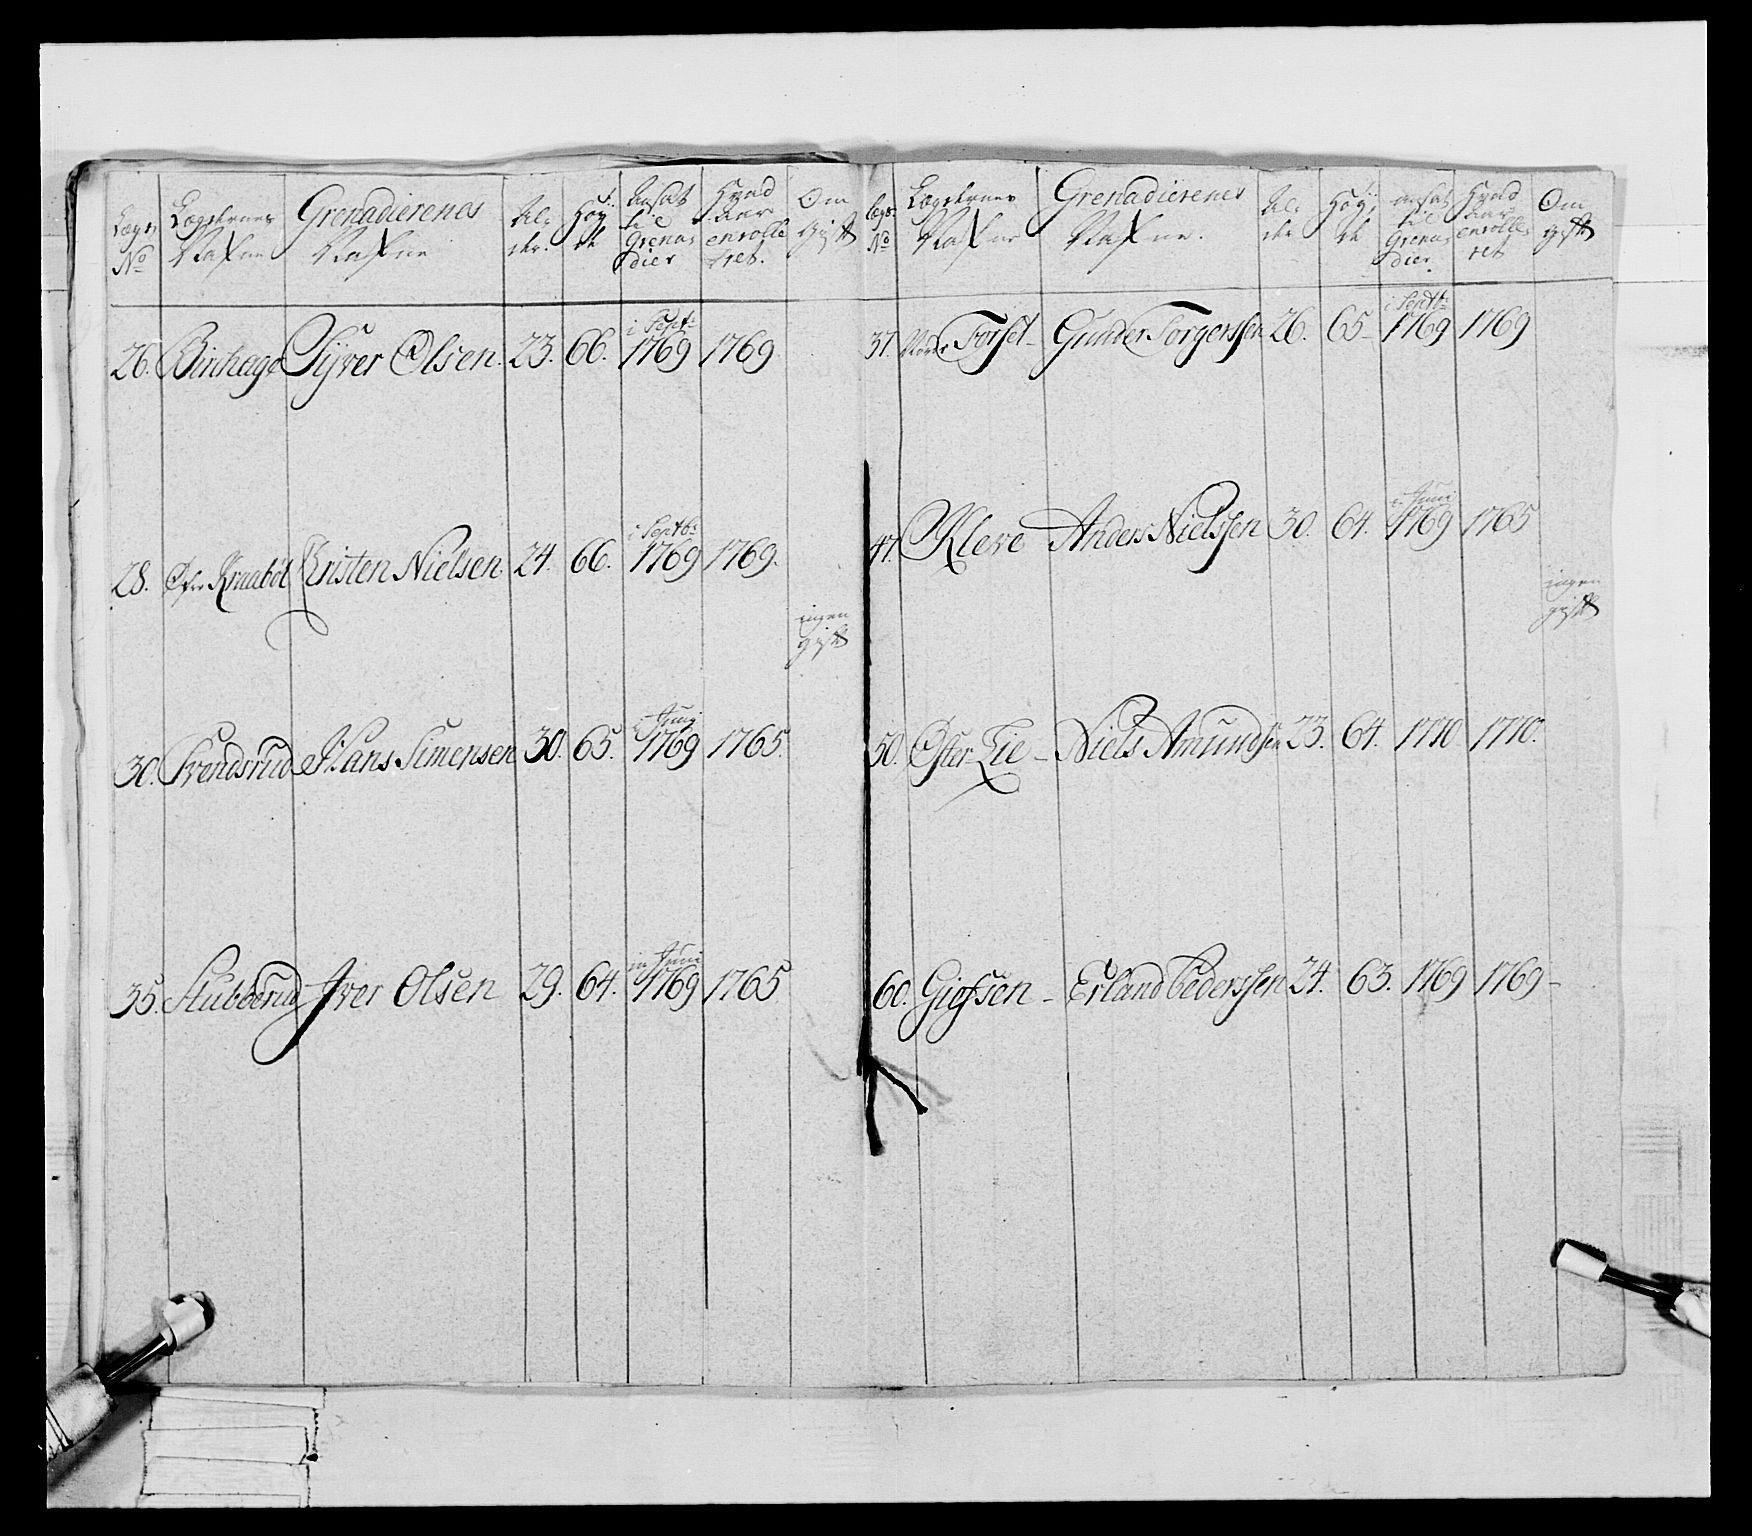 Lægs No | Lægdernes Nafne | Grenadierenes Nafne | Al: der. | Höÿ de | Ansat til Grena: dier | Hvad aar enrolle ret. | Om gift
26. Birchage Syver Olsen. 23. 66. i Sept: 1769 1769
28. Øfre Kraabøl Kristen Nielsen 24. 66. i Septb: 1769 1769.
ingen
gift
30. Svendsrud Hans Simensen 30. 65. i Junj 1769 1765.
35. Stubberud Iver Olsen 29. 64. in Juni 1769 1765
Lægs No | Lægdernes Nafne | Grenadierenes Nafne. | Al: der | Höÿ: de | ansat til Grena: dier. | Hvad aar enrolle: ret | Om gift
37. Nordr Forset - Gunder Torgerssen 26. 65 - i Septt: 1769 1769
47. Kleve Anders Nielssen 30. 64. i Juni 1769 1765
ingen
gift
50. Øster Lie - Niels Amundsen 23. 64. 1770 1770.
60. Giofsen - Erland Pederssen 24. 63. 1769 1769 -